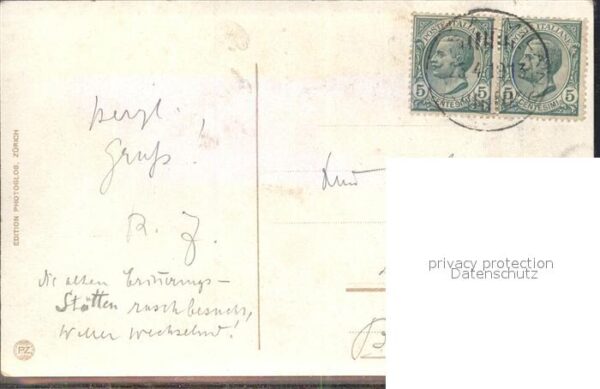 POSTE ITALIANE
POSTE ITALIANE
5 5
5 5
CENTESIMI
CENTESIMI
herzl.
Gruß!
R. Z.
Die alten Erinnerungs-
Stätten rasch besucht,
Wetter wechselnd!
EDITION PHOTOGLOB, ZÜRICH
PZ
privacy protection
Datenschutz